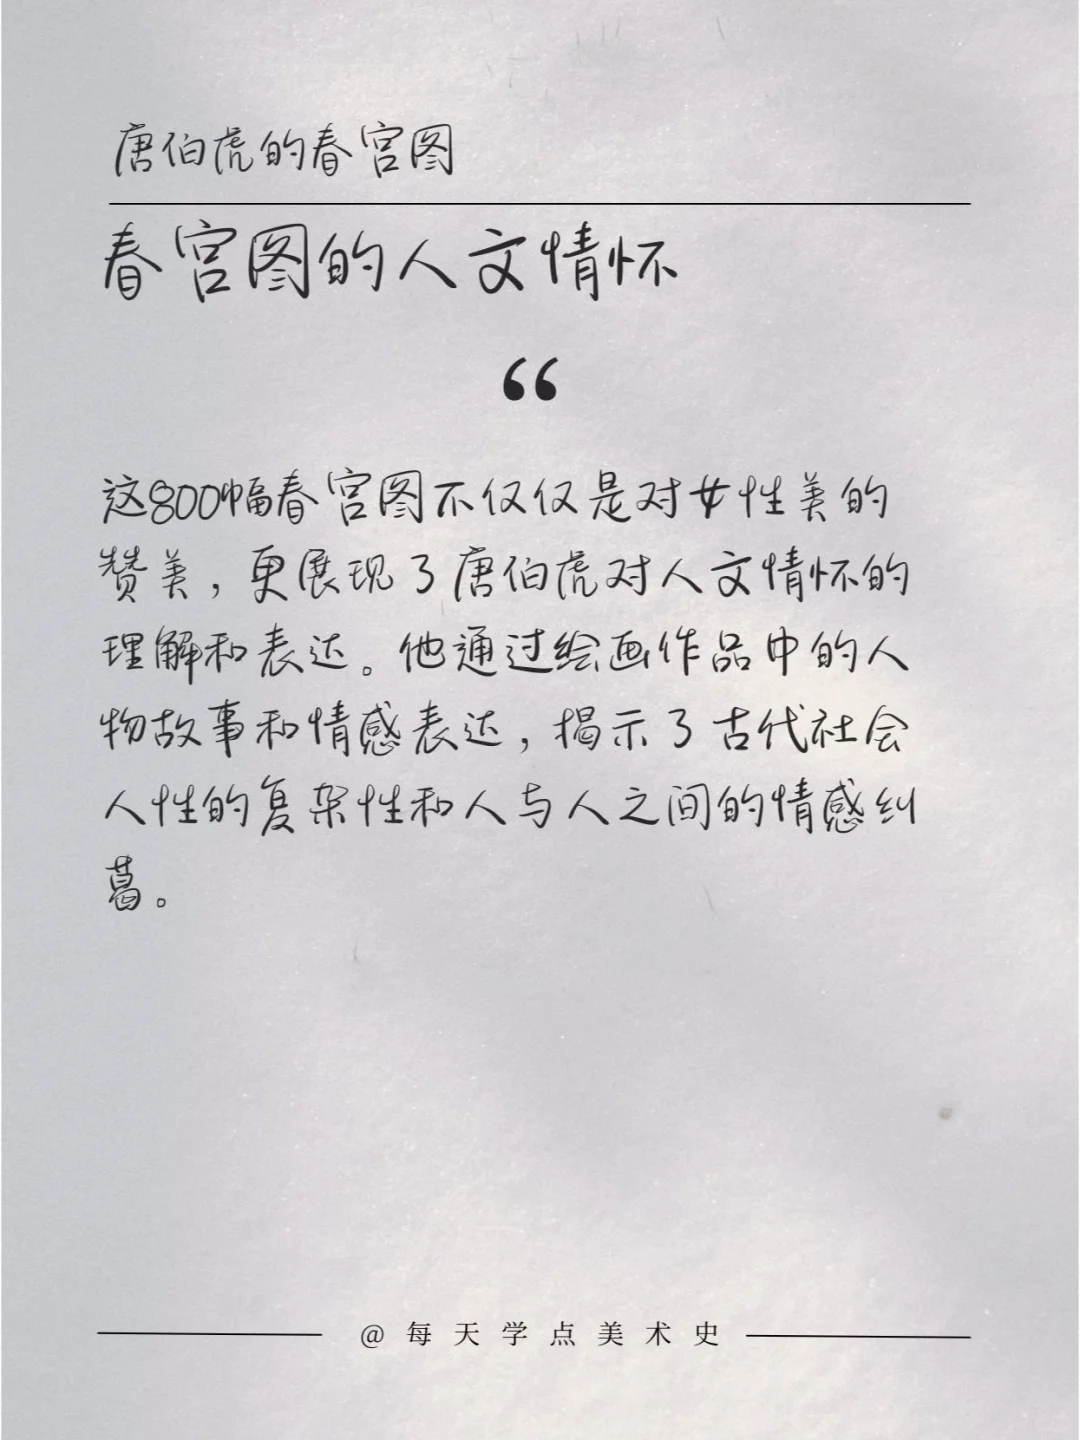 唐伯虎的春宫图
春宫图的人文情怀
“
这800幅春宫图不仅仅是对女性美的
赞美，更展现了唐伯虎对人文情怀的
理解和表达。他通过绘画作品中的人
物故事和情感表达，揭示了古代社会
人性的复杂性和人与人之间的情感纠
葛。
@每天学点美术史